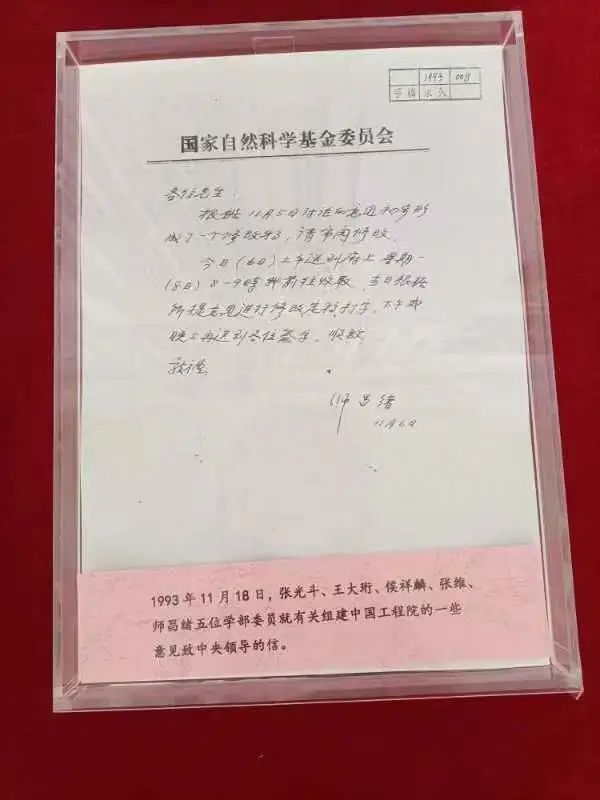 1993 008
学籍 永久
国家自然科学基金委员会
各位先生：
根据11月5日讨论的意见初步形
成了一个修改稿，请审阅修改。
今日（6日）上午送到府上，星期一
（8日）8-9时我前往收取，当日根据
所提意见进行修改定稿打字，下午或
晚上再送到各位签字。收致
敬礼
师昌绪
11月6日
1993年11月18日，张光斗、王大珩、侯祥麟、张维、
师昌绪五位学部委员就有关组建中国工程院的一些
意见致中央领导的信。